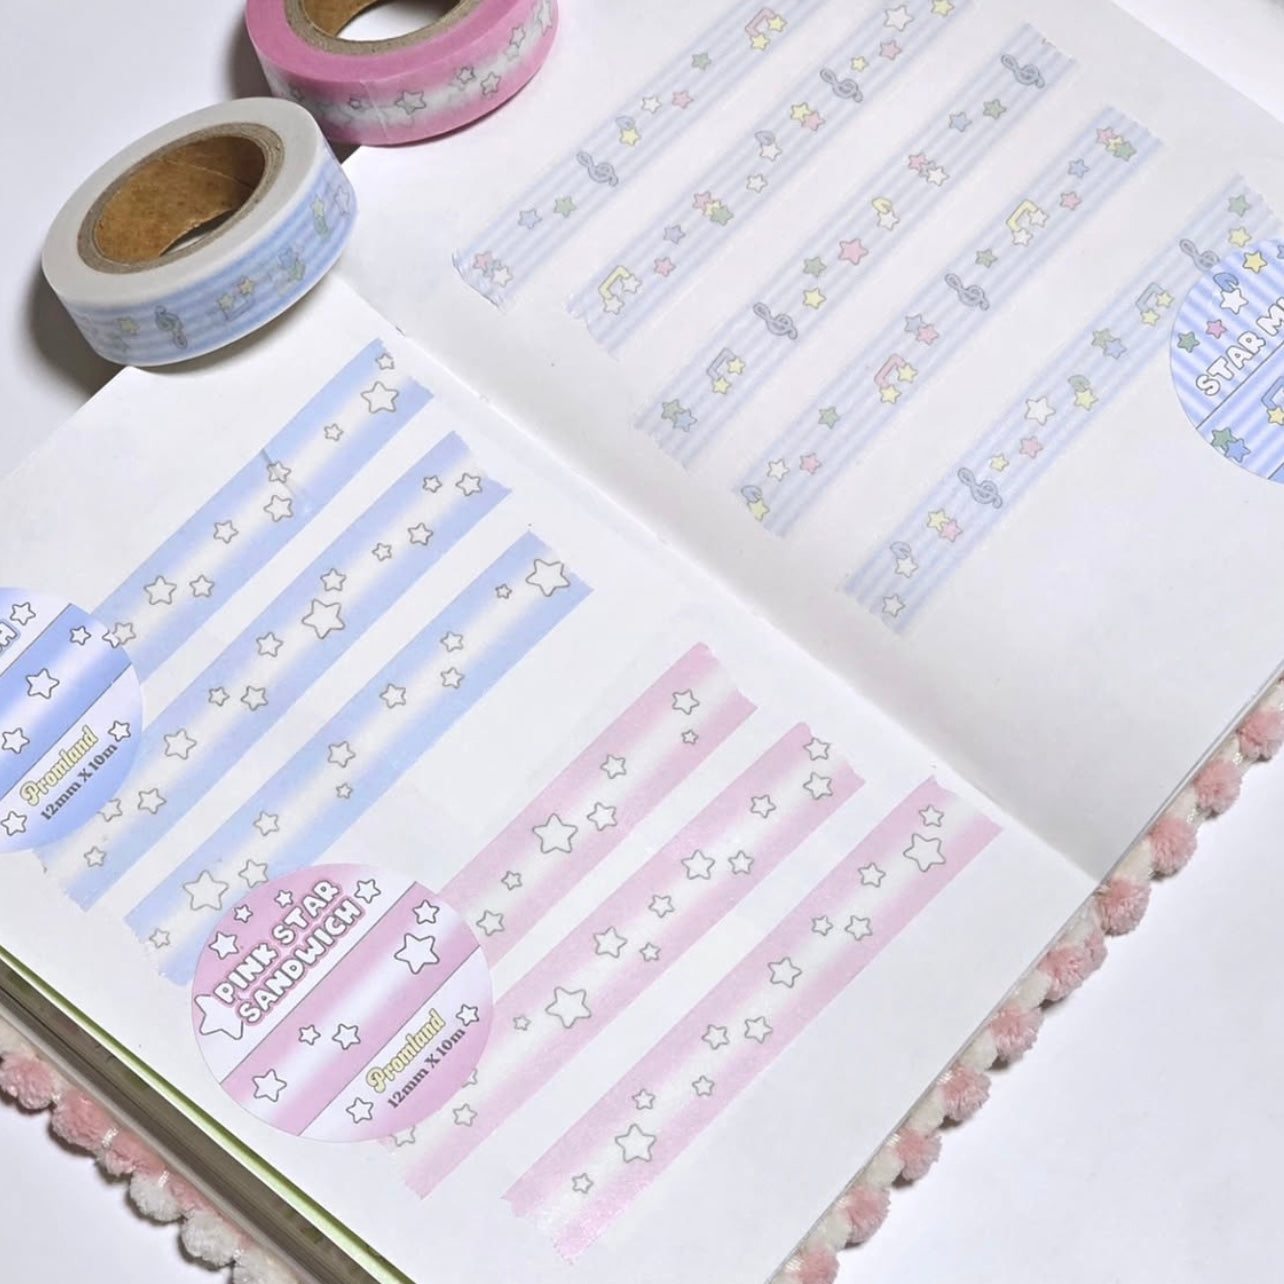 STAR
Promland
12mm X 10m
PINK STAR
SANDWICH
Promland
12mm X 10m